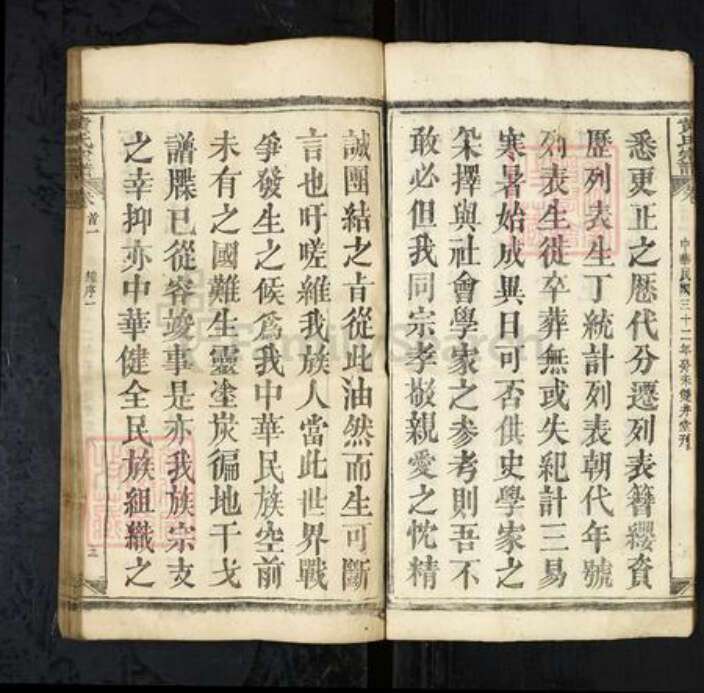 中華民國三十二年癸未雙井堂刊
悉更正之歷代分遷列表簪纓賚
歷列表生丁統計列表朝代年號
列表生徙卒葬無或失紀計三易
寒暑始成異日可否供史學家之
采擇與社會學家之參考則吾不
敢必但我同宗孝敬親愛之忱精
誠團結之旨從此油然而生可斷
言也吁嗟維我族人當此世界戰
爭發生之候爲我中華民族空前
未有之國難生靈塗炭徧地干戈
譜牒已從容竣事是亦我族宗支
之幸抑亦中華健全民族組織之
首一
序一
三
FamilySearch